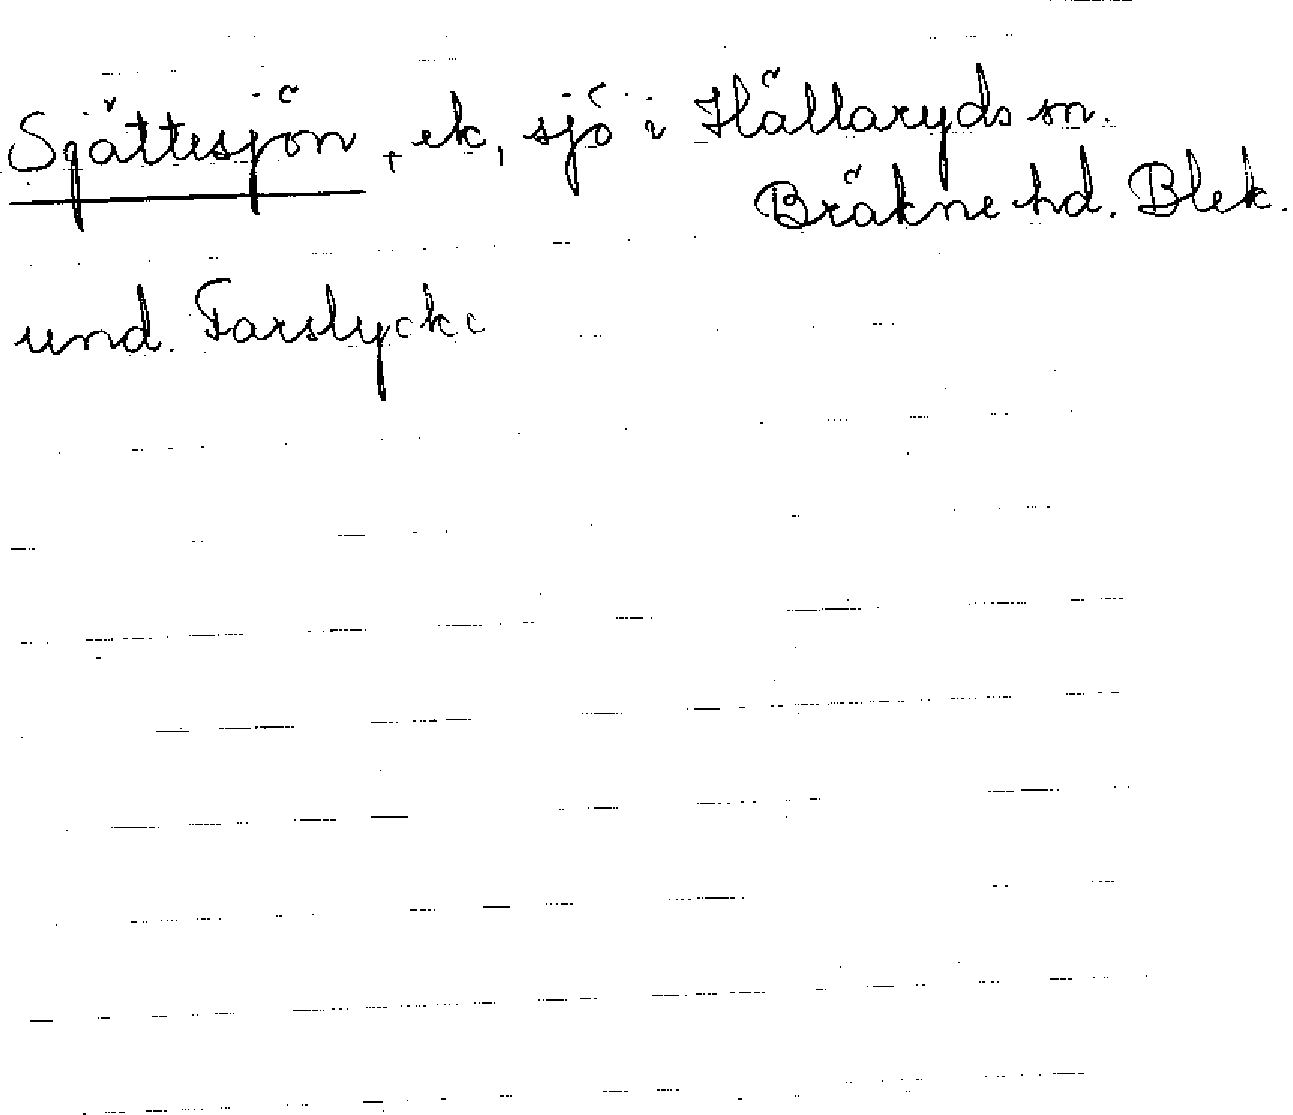 Sjättesjön, +, ek, sjö i Hällaryds sn.
Bräkne hd. Blek.
und. Farslycke